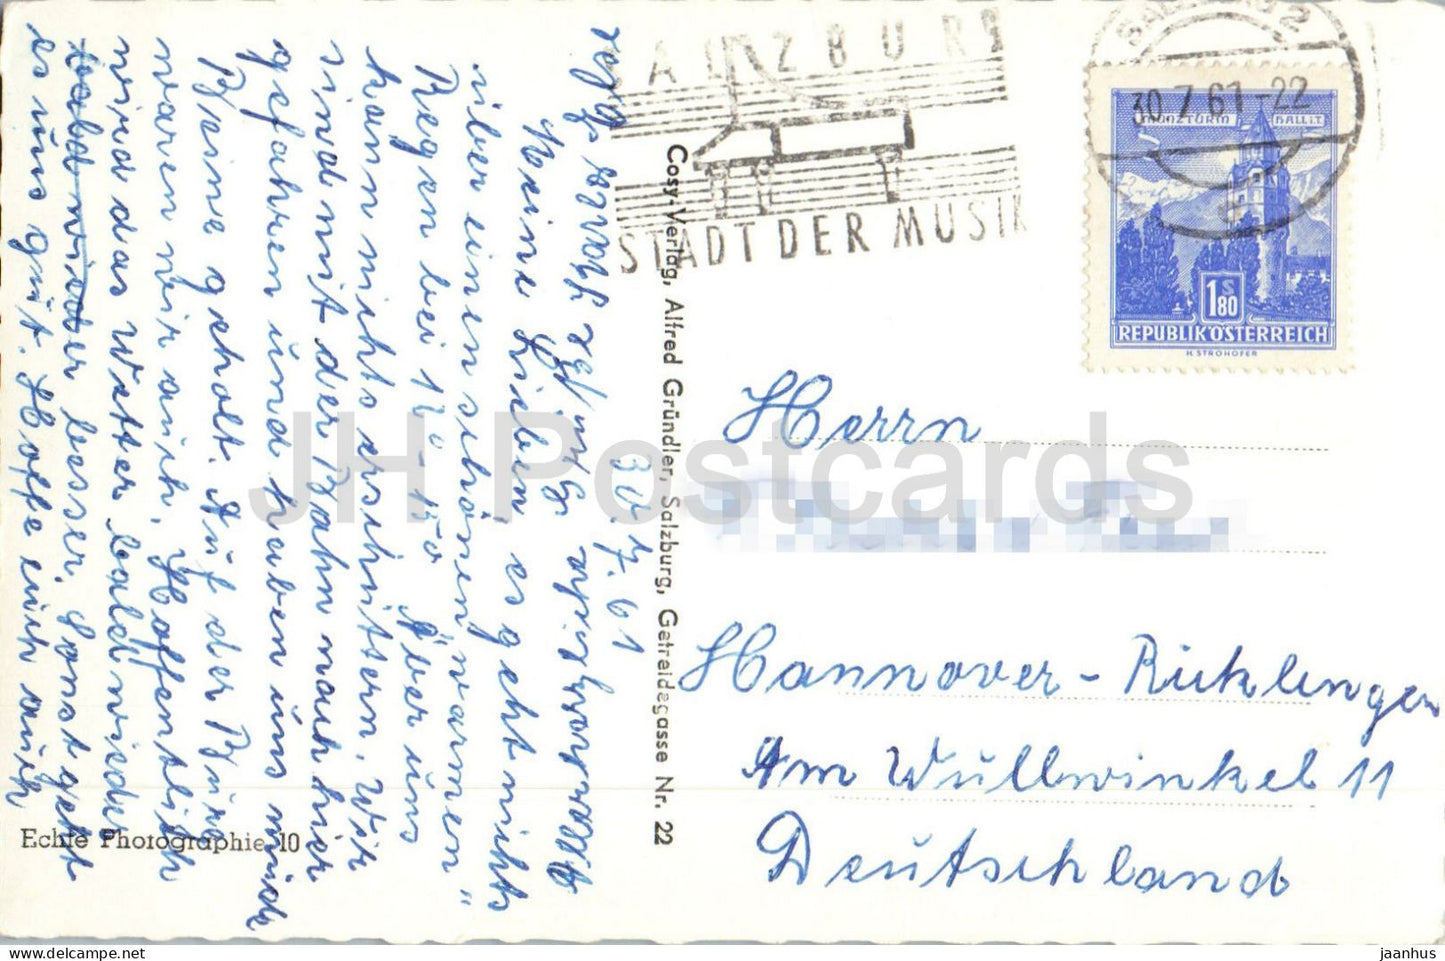 SALZBURG
STADT DER MUSIK
SALZBURG 2
30.7.61-22
MÜNZTURM HALL i.T.
1 S 80
REPUBLIK ÖSTERREICH
H. STROHOFER
30.7.61
Meine Lieben, es geht nichts
über einen schönen "warmen"
Regen bei 12°-15° Aber uns
kann nichts erschüttern. Wir
sind mit der Bahn nach hier
gefahren und haben uns müde
Beine geholt. Auf der Burg
waren wir auch. Hoffentlich
wird das Wetter bald wieder
bald wieder besser. Sonst geht
es uns gut. Hoffe euch auch
Cosy-Verlag, Alfred Gründler, Salzburg, Getreidegasse Nr. 22
Echte Photographie 10
Herrn
Hannover-Ricklingen
Am Wullwinkel 11
Deutschland
JH Postcards
jaanhus